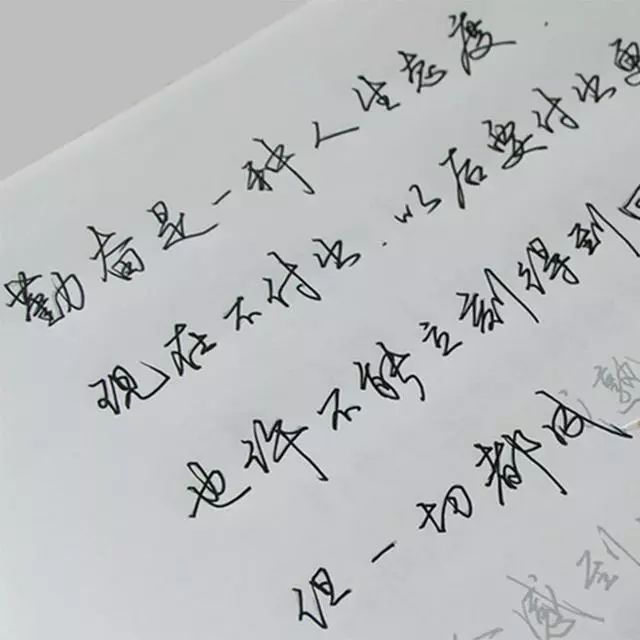 勤奋是一种人生态度.
现在不付出.以后要付出更
也许不能立刻得到回
但一切都
感到